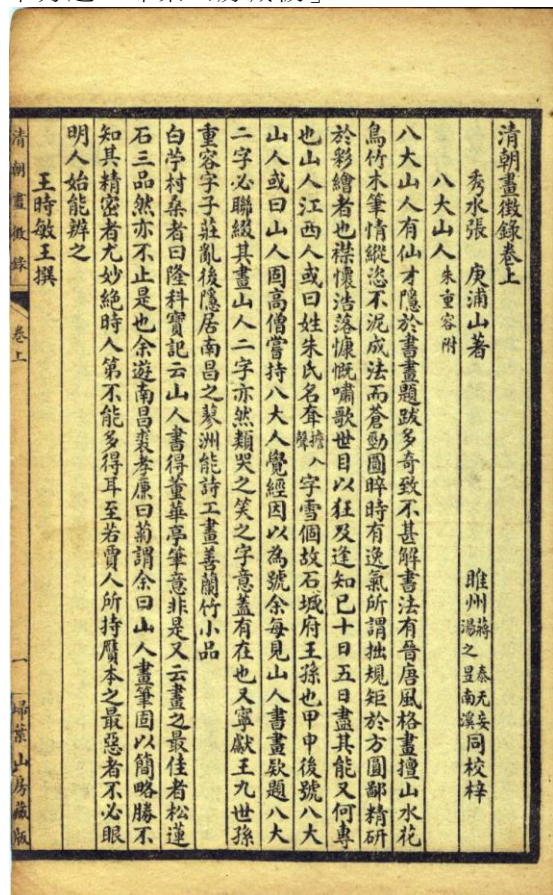 清朝畫徵錄卷上
秀水張　庚浦山著　睢州蔣泰无妄湯之昱南溪同校梓
八大山人朱重容附
八大山人有仙才隱於書畫題跋多奇致不甚解書法有晉唐風格畫擅山水花
鳥竹木筆情縱恣不泥成法而蒼勁圓晬時有逸氣所謂拙規矩於方圓鄙精研
於彩繪者也襟懷浩落慷慨嘯歌世目以狂及逢知已十日五日盡其能又何專
也山人江西人或曰姓朱氏名耷擔入聲字雪個故石城府王孫也甲申後號八大
山人或曰山人固高僧嘗持八大人覺經因以為號余每見山人書畫款題八大
二字必聯綴其畫山人二字亦然類哭之笑之字意蓋有在也又寧獻王九世孫
重容字子莊亂後隱居南昌之蓼洲能詩工畫善蘭竹小品
白苧村桑者曰隆科寶記云山人書得董華亭筆意非是又云畫之最佳者松蓮
石三品然亦不止是也余遊南昌裘孝廉曰菊謂余曰山人畫筆固以簡略勝不
知其精密者尤妙絕時人第不能多得耳至若賈人所持贋本之最惡者不必眼
明人始能辨之
王時敏王撰
清朝畫徵錄　卷上　一　埽葉山房藏版